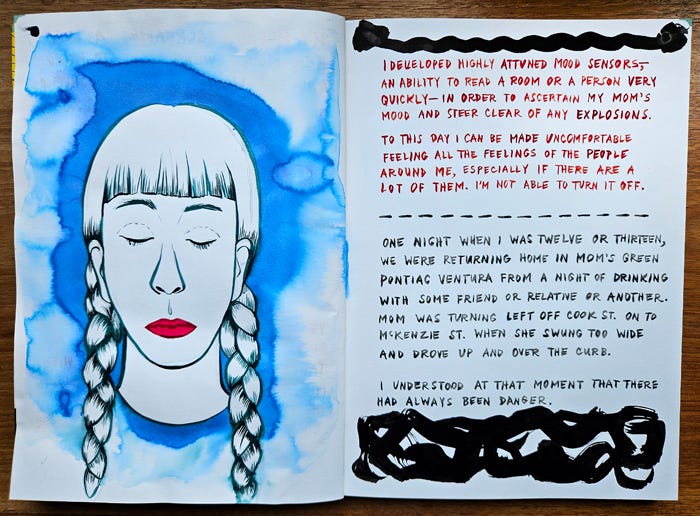 I DEVELOPED HIGHLY ATTUNED MOOD SENSORS,—
AN ABILITY TO READ A ROOM OR A PERSON VERY
QUICKLY— IN ORDER TO ASCERTAIN MY MOM'S
MOOD AND STEER CLEAR OF ANY EXPLOSIONS.
TO THIS DAY I CAN BE MADE UNCOMFORTABLE
FEELING ALL THE FEELINGS OF THE PEOPLE
AROUND ME, ESPECIALLY IF THERE ARE A
LOT OF THEM. I'M NOT ABLE TO TURN IT OFF.
ONE NIGHT WHEN I WAS TWELVE OR THIRTEEN,
WE WERE RETURNING HOME IN MOM'S GREEN
PONTIAC VENTURA FROM A NIGHT OF DRINKING
WITH SOME FRIEND OR RELATIVE OR ANOTHER.
MOM WAS TURNING LEFT OFF COOK ST. ON TO
MCKENZIE ST. WHEN SHE SWUNG TOO WIDE
AND DROVE UP AND OVER THE CURB.
I UNDERSTOOD AT THAT MOMENT THAT THERE
HAD ALWAYS BEEN DANGER.